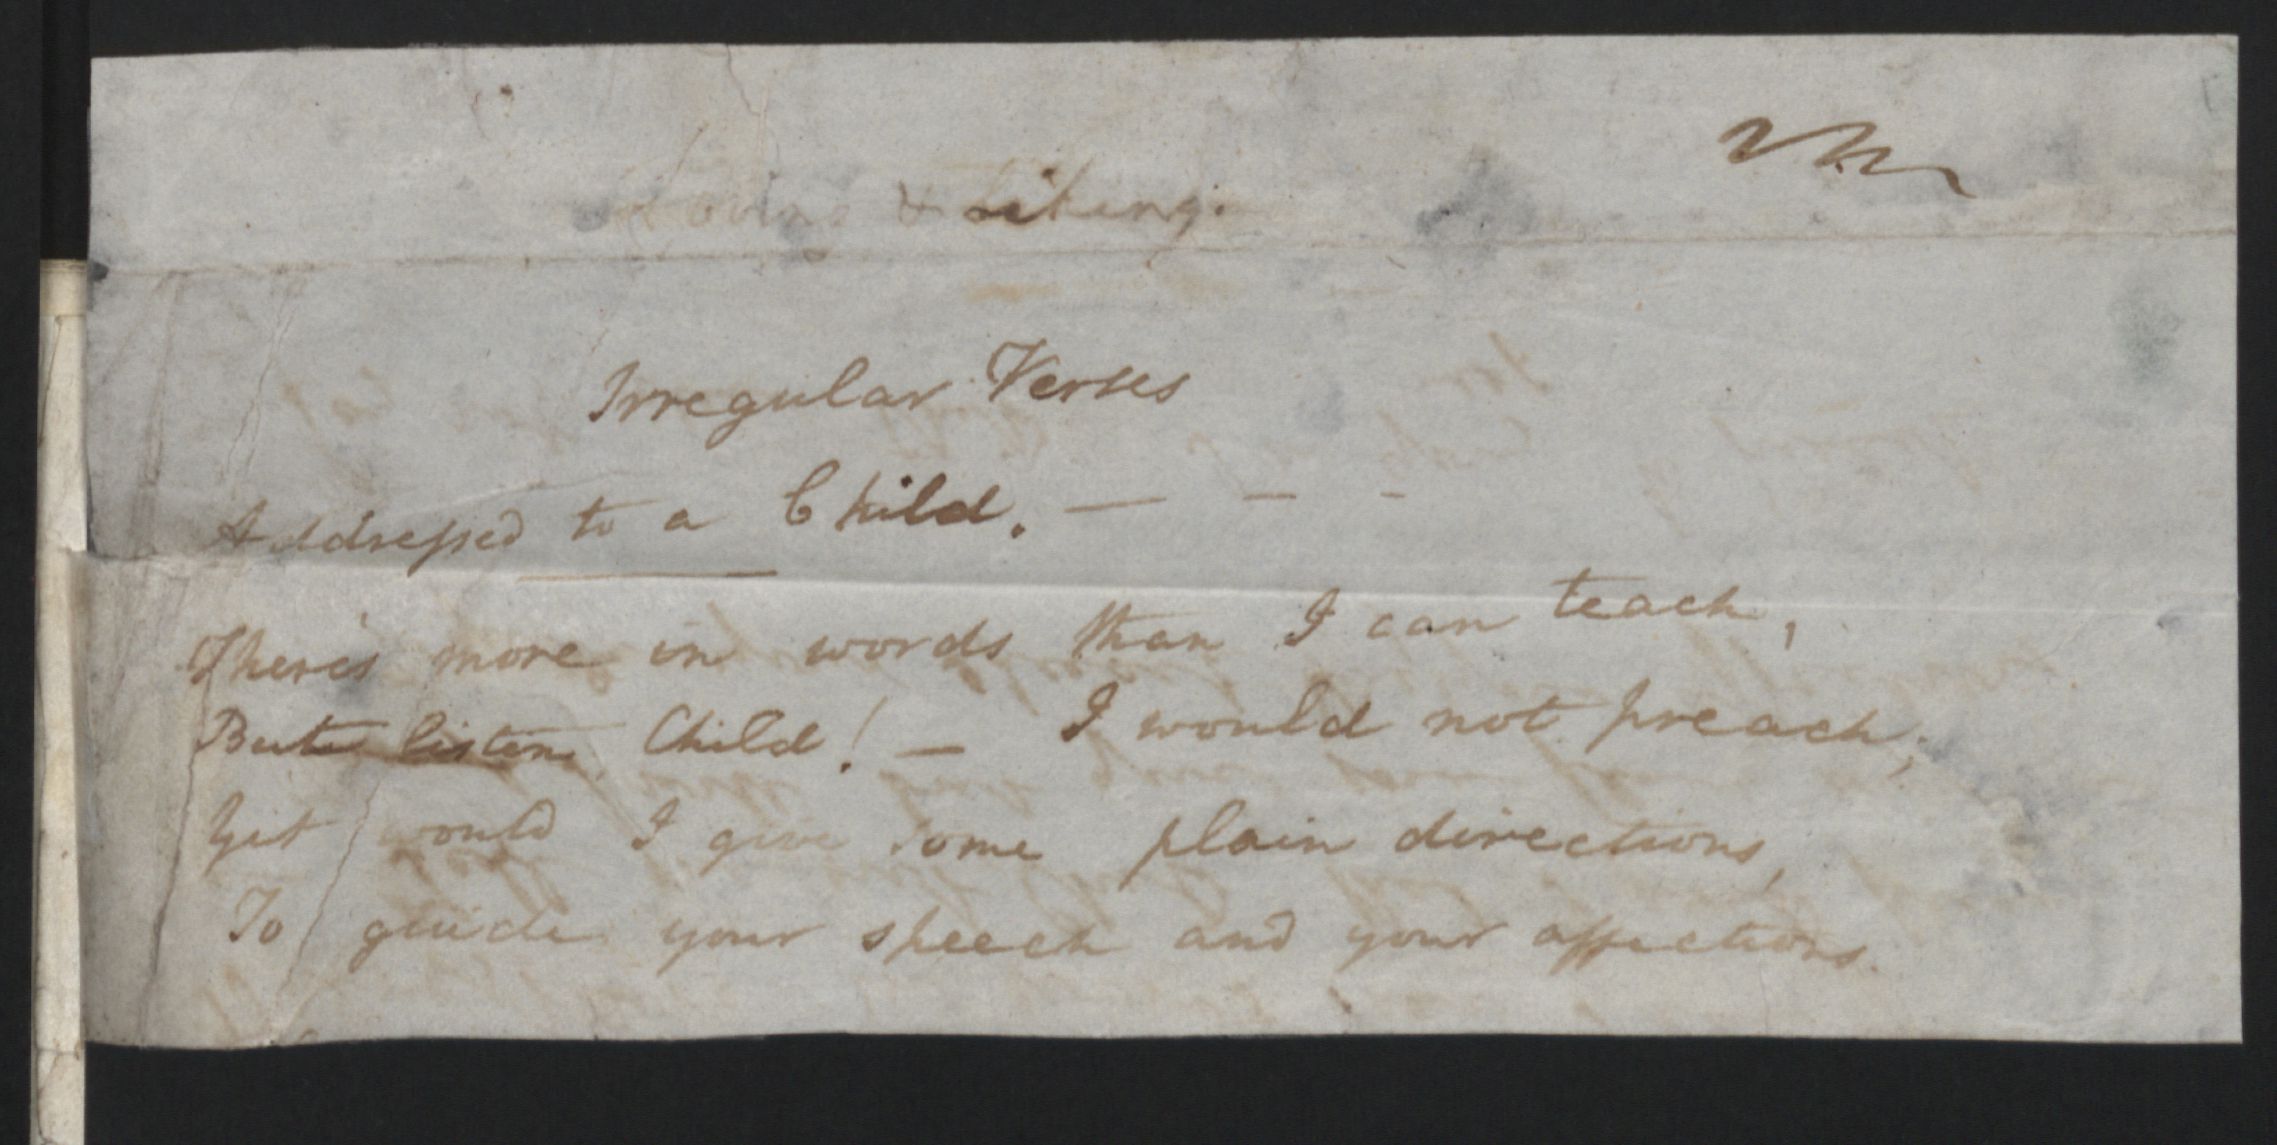 Loving & Liking.
Irregular Verses
Addressed to a Child. — — -
There's more in words than I can teach,
But listen, Child! — I would not preach;
Yet would I give some plain directions,
To guide your speech and your affections.